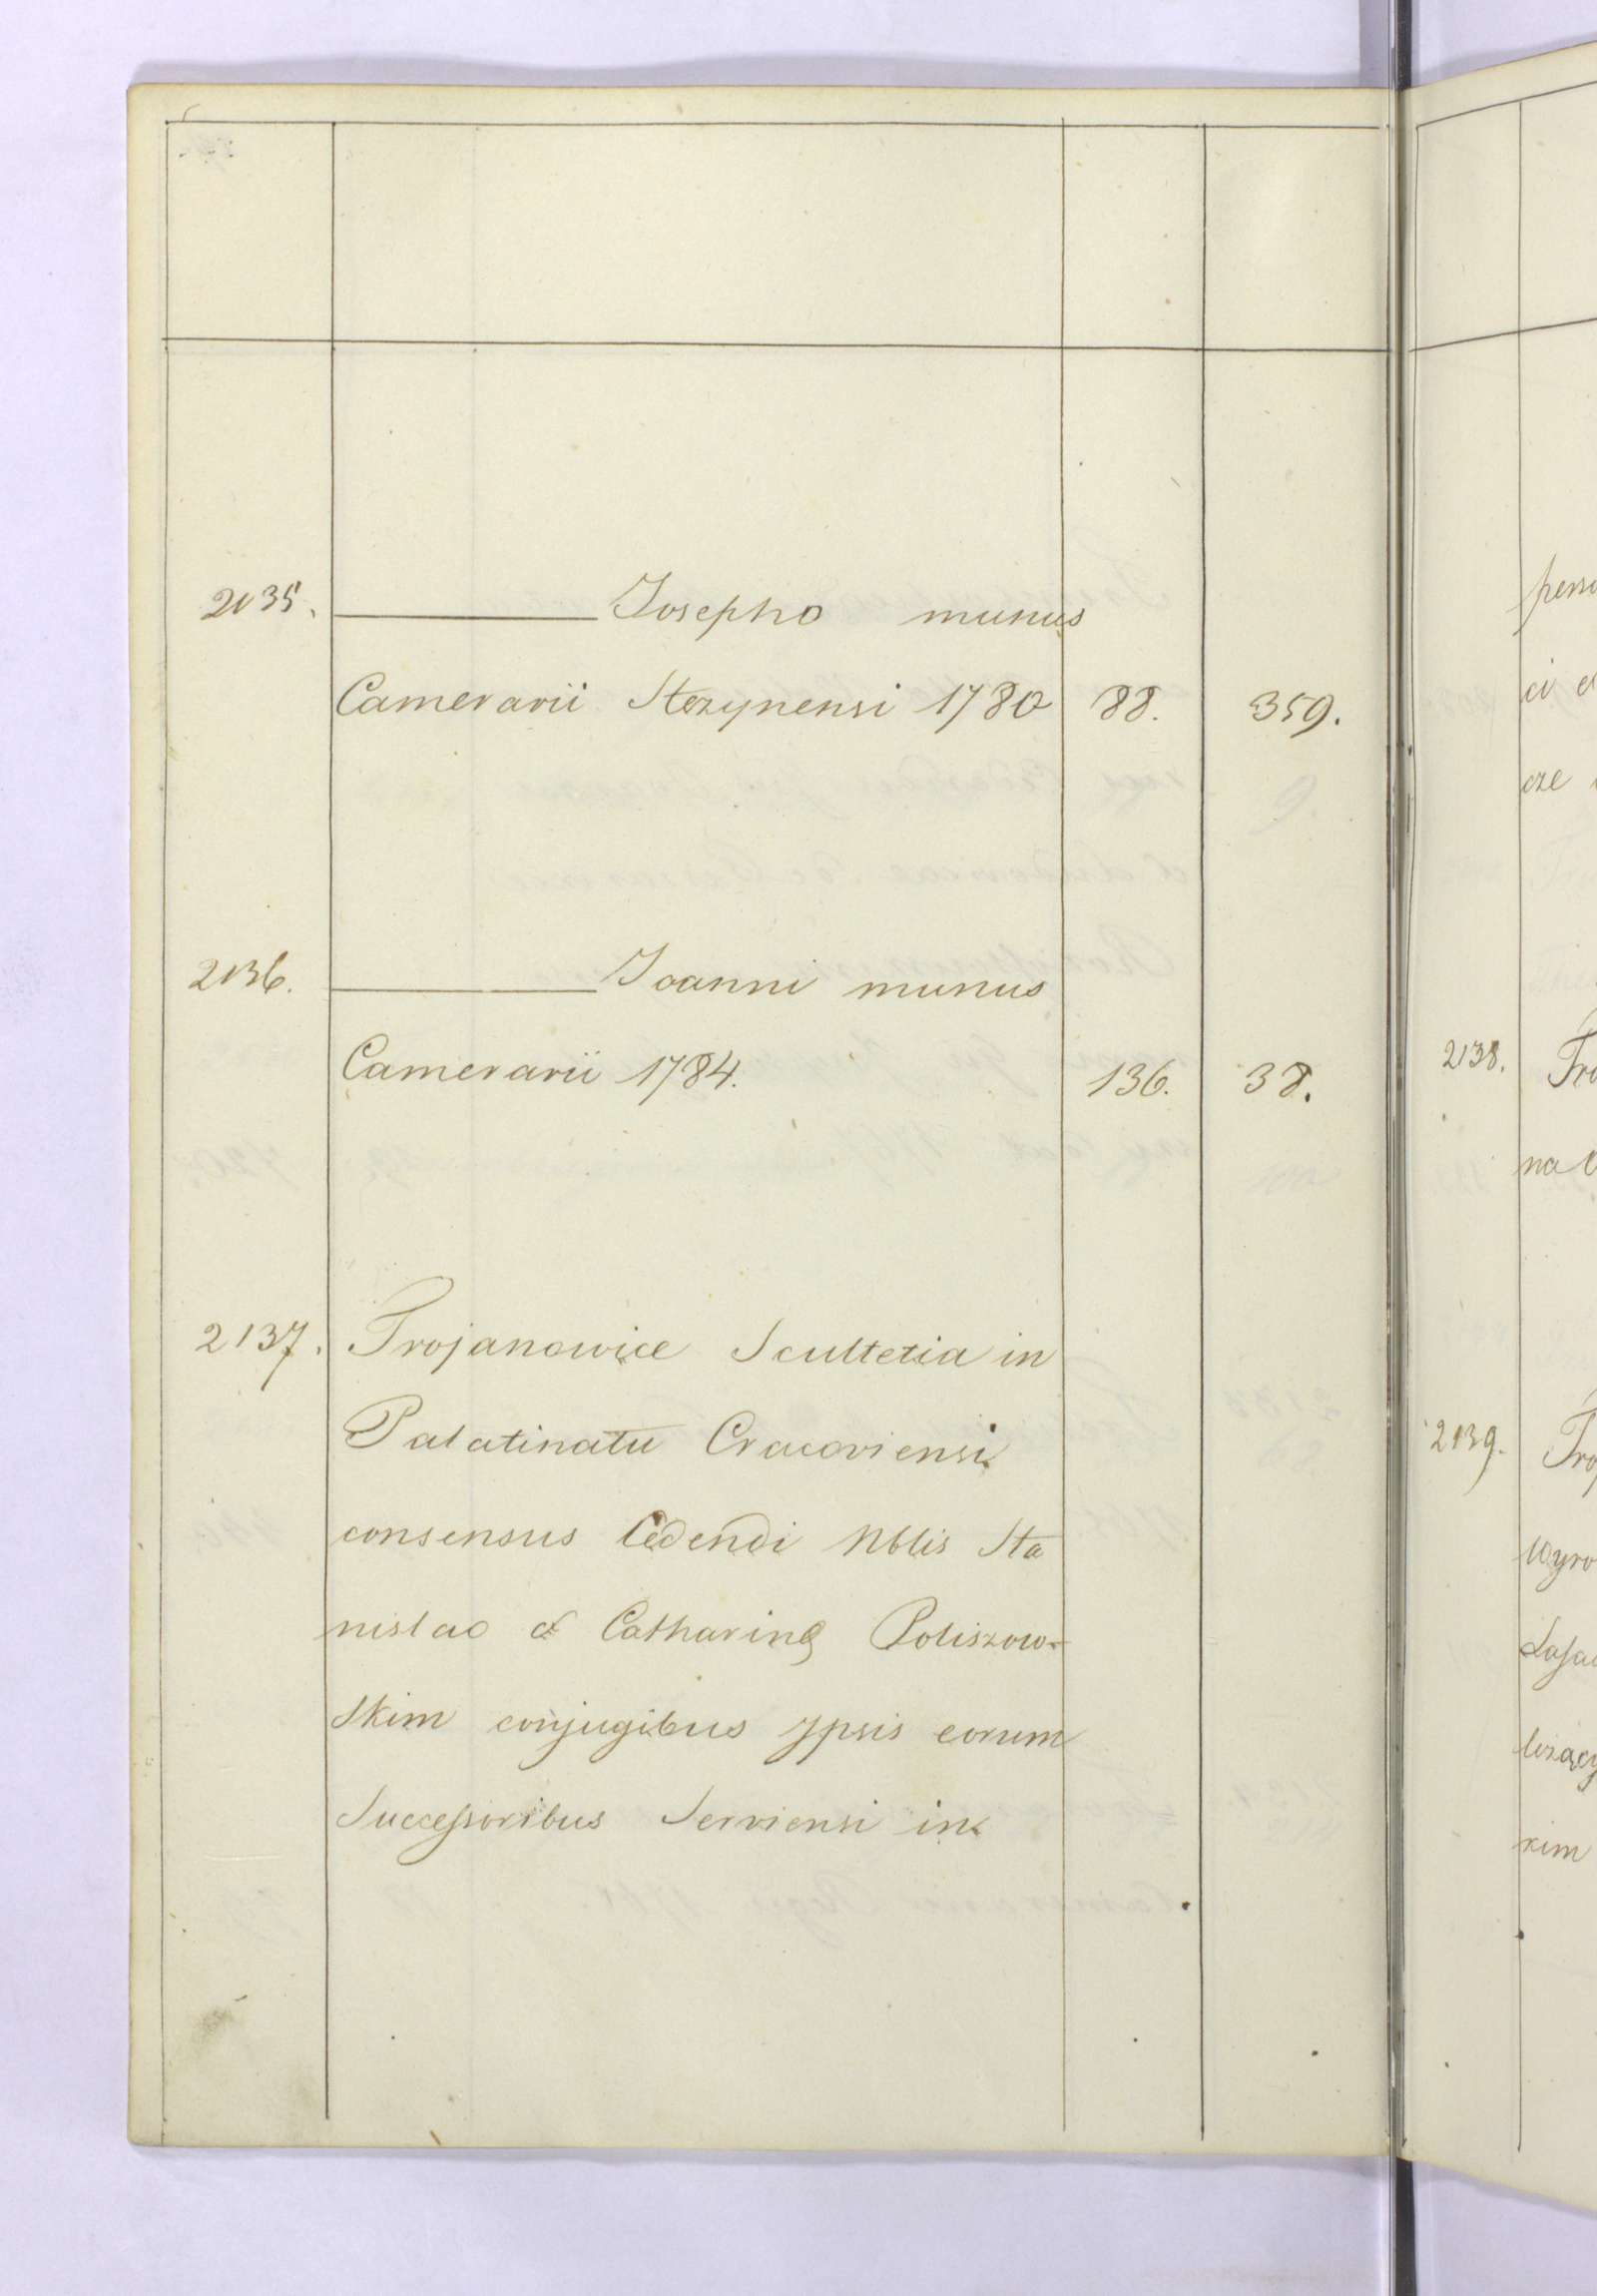 2135. ——— Josepho munus
Camerarii Stezynensi 1780 88. 359.
2136. ——— Joanni munus
Camerarii 1784. 136. 38.
2137. Trojanowice Scultetia in
Palatinatu Cracoviensi
consensus Cedendi Nblis Sta
nislao et Catharinę Poliszow-
skim conjugibus ypsis eorum
Successoribus Serviensi in
perso
ci
cze
2138. Tro
na
2139. Tro
Wyro
Lasa
kim